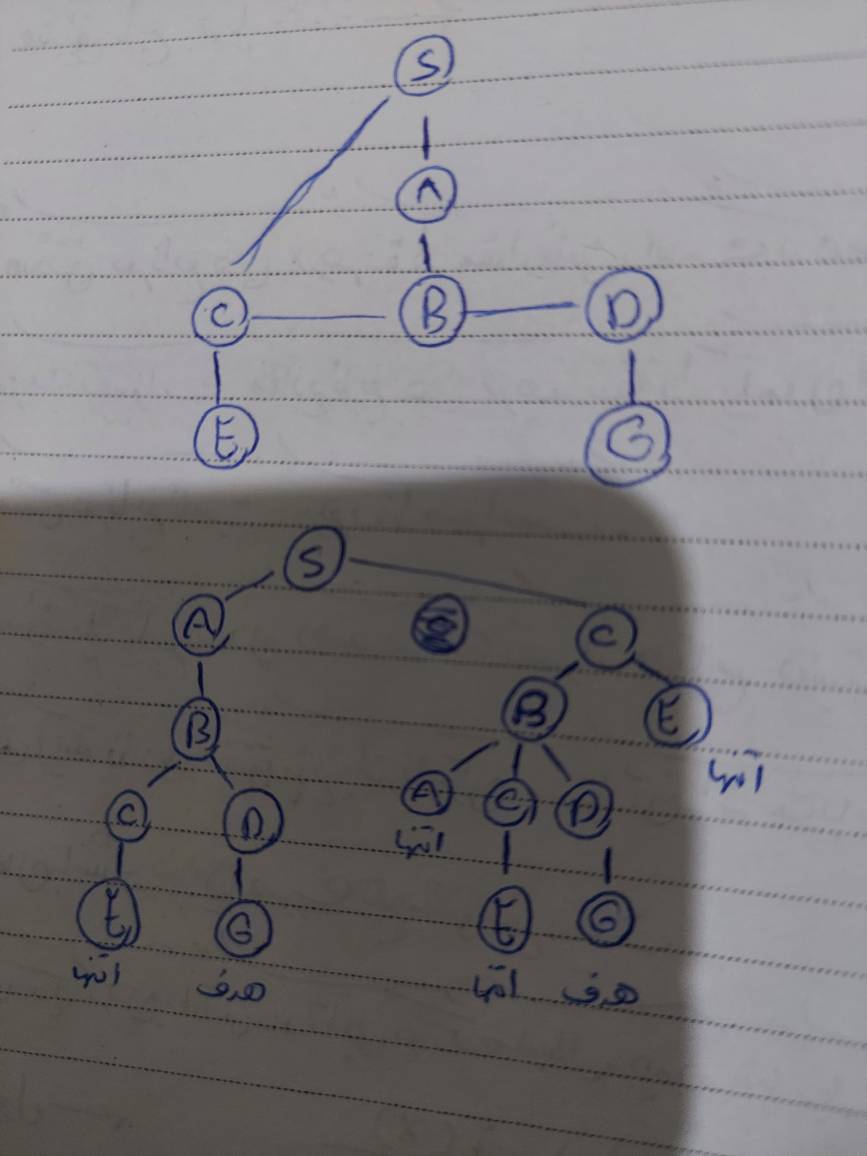 S
A
C B D
E G
S
A C
B B E
انتها
C D A C D
انتها
E G E G
انتها هدف انتها هدف